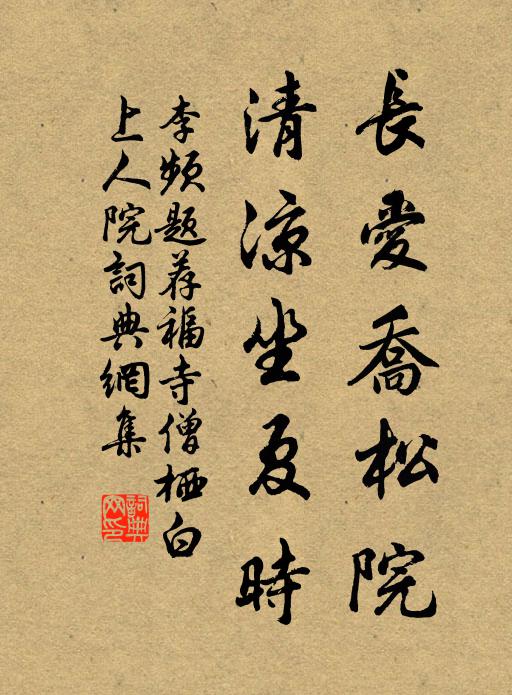 長愛喬松院
清涼坐夏時
李頻題荐福寺僧栖白
上人院詞典網集
詞典
網印